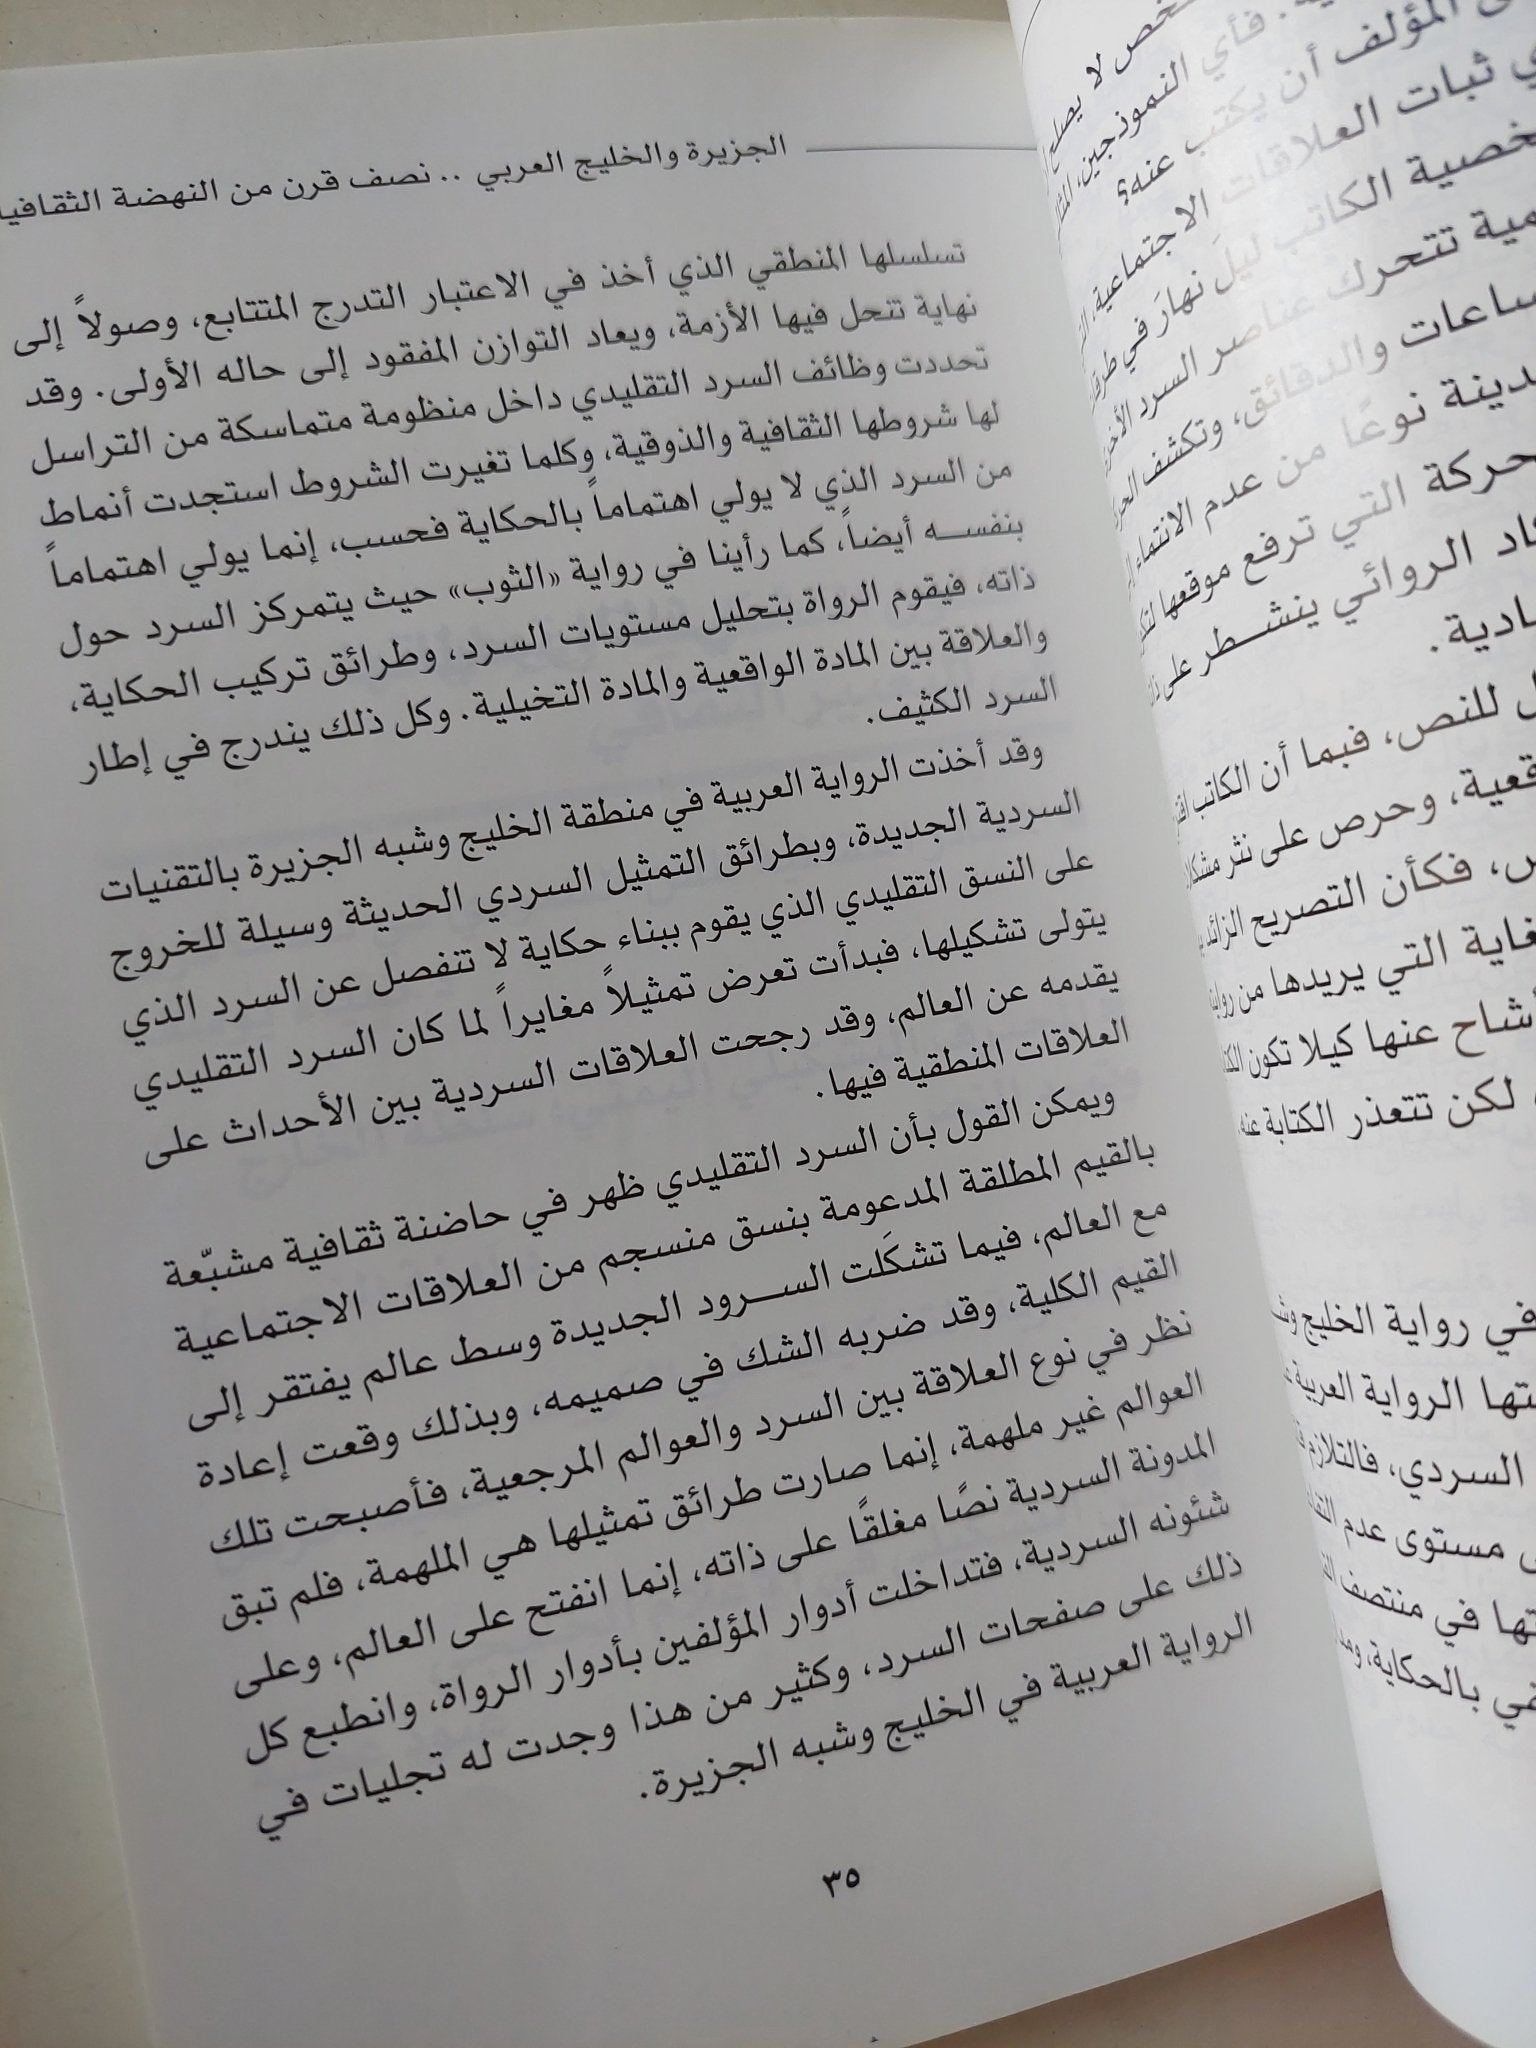 شخص لا يصلح
المؤلف أن يكتب عنه؟ فأي النموذجين،
ثبات العلاقات الاجتماعية،
الكاتب ليلَ نهارَ في
تتحرك عناصر السرد
والدقائق، وتكشف
نوعًا من عدم الانتماء
التي ترفع موقعها
الروائي ينشطر على
للنص، فبما أن الكاتب
وحرص على نثر
فكأن التصريح الزائد
التي يريدها من
عنها كيلا تكون
لكن تتعذر الكتابة عنه
في رواية الخليج
الرواية العربية
السردي، فالتلازم
مستوى عدم
في منتصف
بالحكاية،
الجزيرة والخليج العربي .. نصف قرن من النهضة الثقافية
تسلسلها المنطقي الذي أخذ في الاعتبار التدرج المتتابع، وصولاً إلى
نهاية تتحل فيها الأزمة، ويعاد التوازن المفقود إلى حاله الأولى. وقد
تحددت وظائف السرد التقليدي داخل منظومة متماسكة من التراسل
لها شروطها الثقافية والذوقية، وكلما تغيرت الشروط استجدت أنماط
من السرد الذي لا يولي اهتماماً بالحكاية فحسب، إنما يولي اهتماماً
بنفسه أيضاً، كما رأينا في رواية «الثوب» حيث يتمركز السرد حول
ذاته، فيقوم الرواة بتحليل مستويات السرد، وطرائق تركيب الحكاية،
والعلاقة بين المادة الواقعية والمادة التخيلية. وكل ذلك يندرج في إطار
السرد الكثيف.
وقد أخذت الرواية العربية في منطقة الخليج وشبه الجزيرة بالتقنيات
السردية الجديدة، وبطرائق التمثيل السردي الحديثة وسيلة للخروج
على النسق التقليدي الذي يقوم ببناء حكاية لا تتفصل عن السرد الذي
يتولى تشكيلها، فبدأت تعرض تمثيلاً مغايراً لما كان السرد التقليدي
يقدمه عن العالم، وقد رجحت العلاقات السردية بين الأحداث على
العلاقات المنطقية فيها.
ويمكن القول بأن السرد التقليدي ظهر في حاضنة ثقافية مشبّعة
بالقيم المطلقة المدعومة بنسق منسجم من العلاقات الاجتماعية
مع العالم، فيما تشكَلت السرود الجديدة وسط عالم يفتقر إلى
القيم الكلية، وقد ضربه الشك في صميمه، وبذلك وقعت إعادة
نظر في نوع العلاقة بين السرد والعوالم المرجعية، فأصبحت تلك
العوالم غير ملهمة، إنما صارت طرائق تمثيلها هي الملهمة، فلم تبق
المدونة السردية نصًا مغلقًا على ذاته، إنما انفتح على العالم، وعلى
شئونه السردية، فتداخلت أدوار المؤلفين بأدوار الرواة، وانطبع كل
ذلك على صفحات السرد، وكثير من هذا وجدت له تجليات في
الرواية العربية في الخليج وشبه الجزيرة.
٣٥